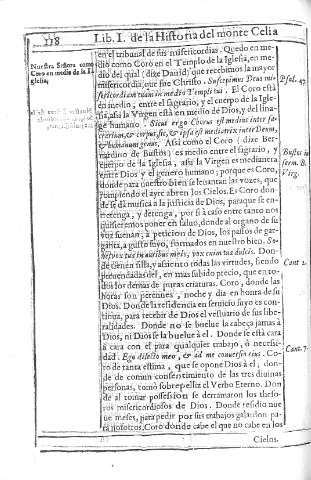 118 Lib. I. de la Historia del monte Celia
Nuestra Señora como
Coro en medio de la I-
glesia;
en el tribunal de sus misericordias. Quedo en me-
dio como Coro en el Templo de la Iglesia, en me-
dio del qual (dize Dauid) que recibimos la mayor
misericordia, que fue Christo. Suscepimus Deus mi-
sericordiam tuam in medio Templi tui. El Coro está
en medio, entre el sagrario, y el cuerpo de la Igle-
sia, assi la Virgen está en medio de Dios, y del lina-
ge humano. Sicut ergo Chorus est medius inter sa-
crarium, & corpus sic, & ipsa est mediatrix inter Deum,
& humanum genus. Assi como el Coro (dize Ber-
nardino de Bustos) es medio entre el sagrario, y
cuerpo de la Iglesia, assi la Virgen es medianera
entre Dios y el genero humano; porque es Coro,
donde para nuestro bien se leuantan las vozes, que
rompiendo el ayre abren los Cielos. Es Coro don-
de se dá musica a la justicia de Dios, paraque se en-
tretenga, y detenga, por si à caso entre tanto nos
quisieremos poner en saluo, donde al organo de su
voz suenan; à peticion de Dios, los passos de gar-
ganta, a gusto suyo, formados en nuestro bien. So-
net vox tua in auribus meis, vox enim tua dulcis. Don-
de tienen silla, y assiento todas las virtudes, siendo
prebendadas del, en mas subido precio, que en to-
dos los demas de puras criaturas. Coro, donde las
horas son perennes, noche y dia en honra de su
Dios. Donde la residencia en seruicio suyo es con-
tinua, para recibir de Dios el vestuario de sus libe-
ralidades. Donde no se buelue la cabeça jamàs à
Dios, ni Dios se la buelue à el. Donde se està cara
à cara con el para qualquier trabajo, ò necessi-
dad. Ego dilecto meo, & ad me conuersio eius. Co-
ro de tanta estima, que se opone Dios à el; don-
de de comun consentimiento de las tres diuinas
personas, tomò sobrepelliz el Verbo Eterno. Don
de al tomar possession se derramaron los theso-
ros misericordiosos de Dios. Donde residio nue
ue meses, para pedir por sus trabajos galardon pa-
ra nosotros. Coro donde cabe el que no cabe en los
Cielos.
Psal. 47.
Bustos in
serm. 8.
Virg.
Cant 2.
Cant. 7.